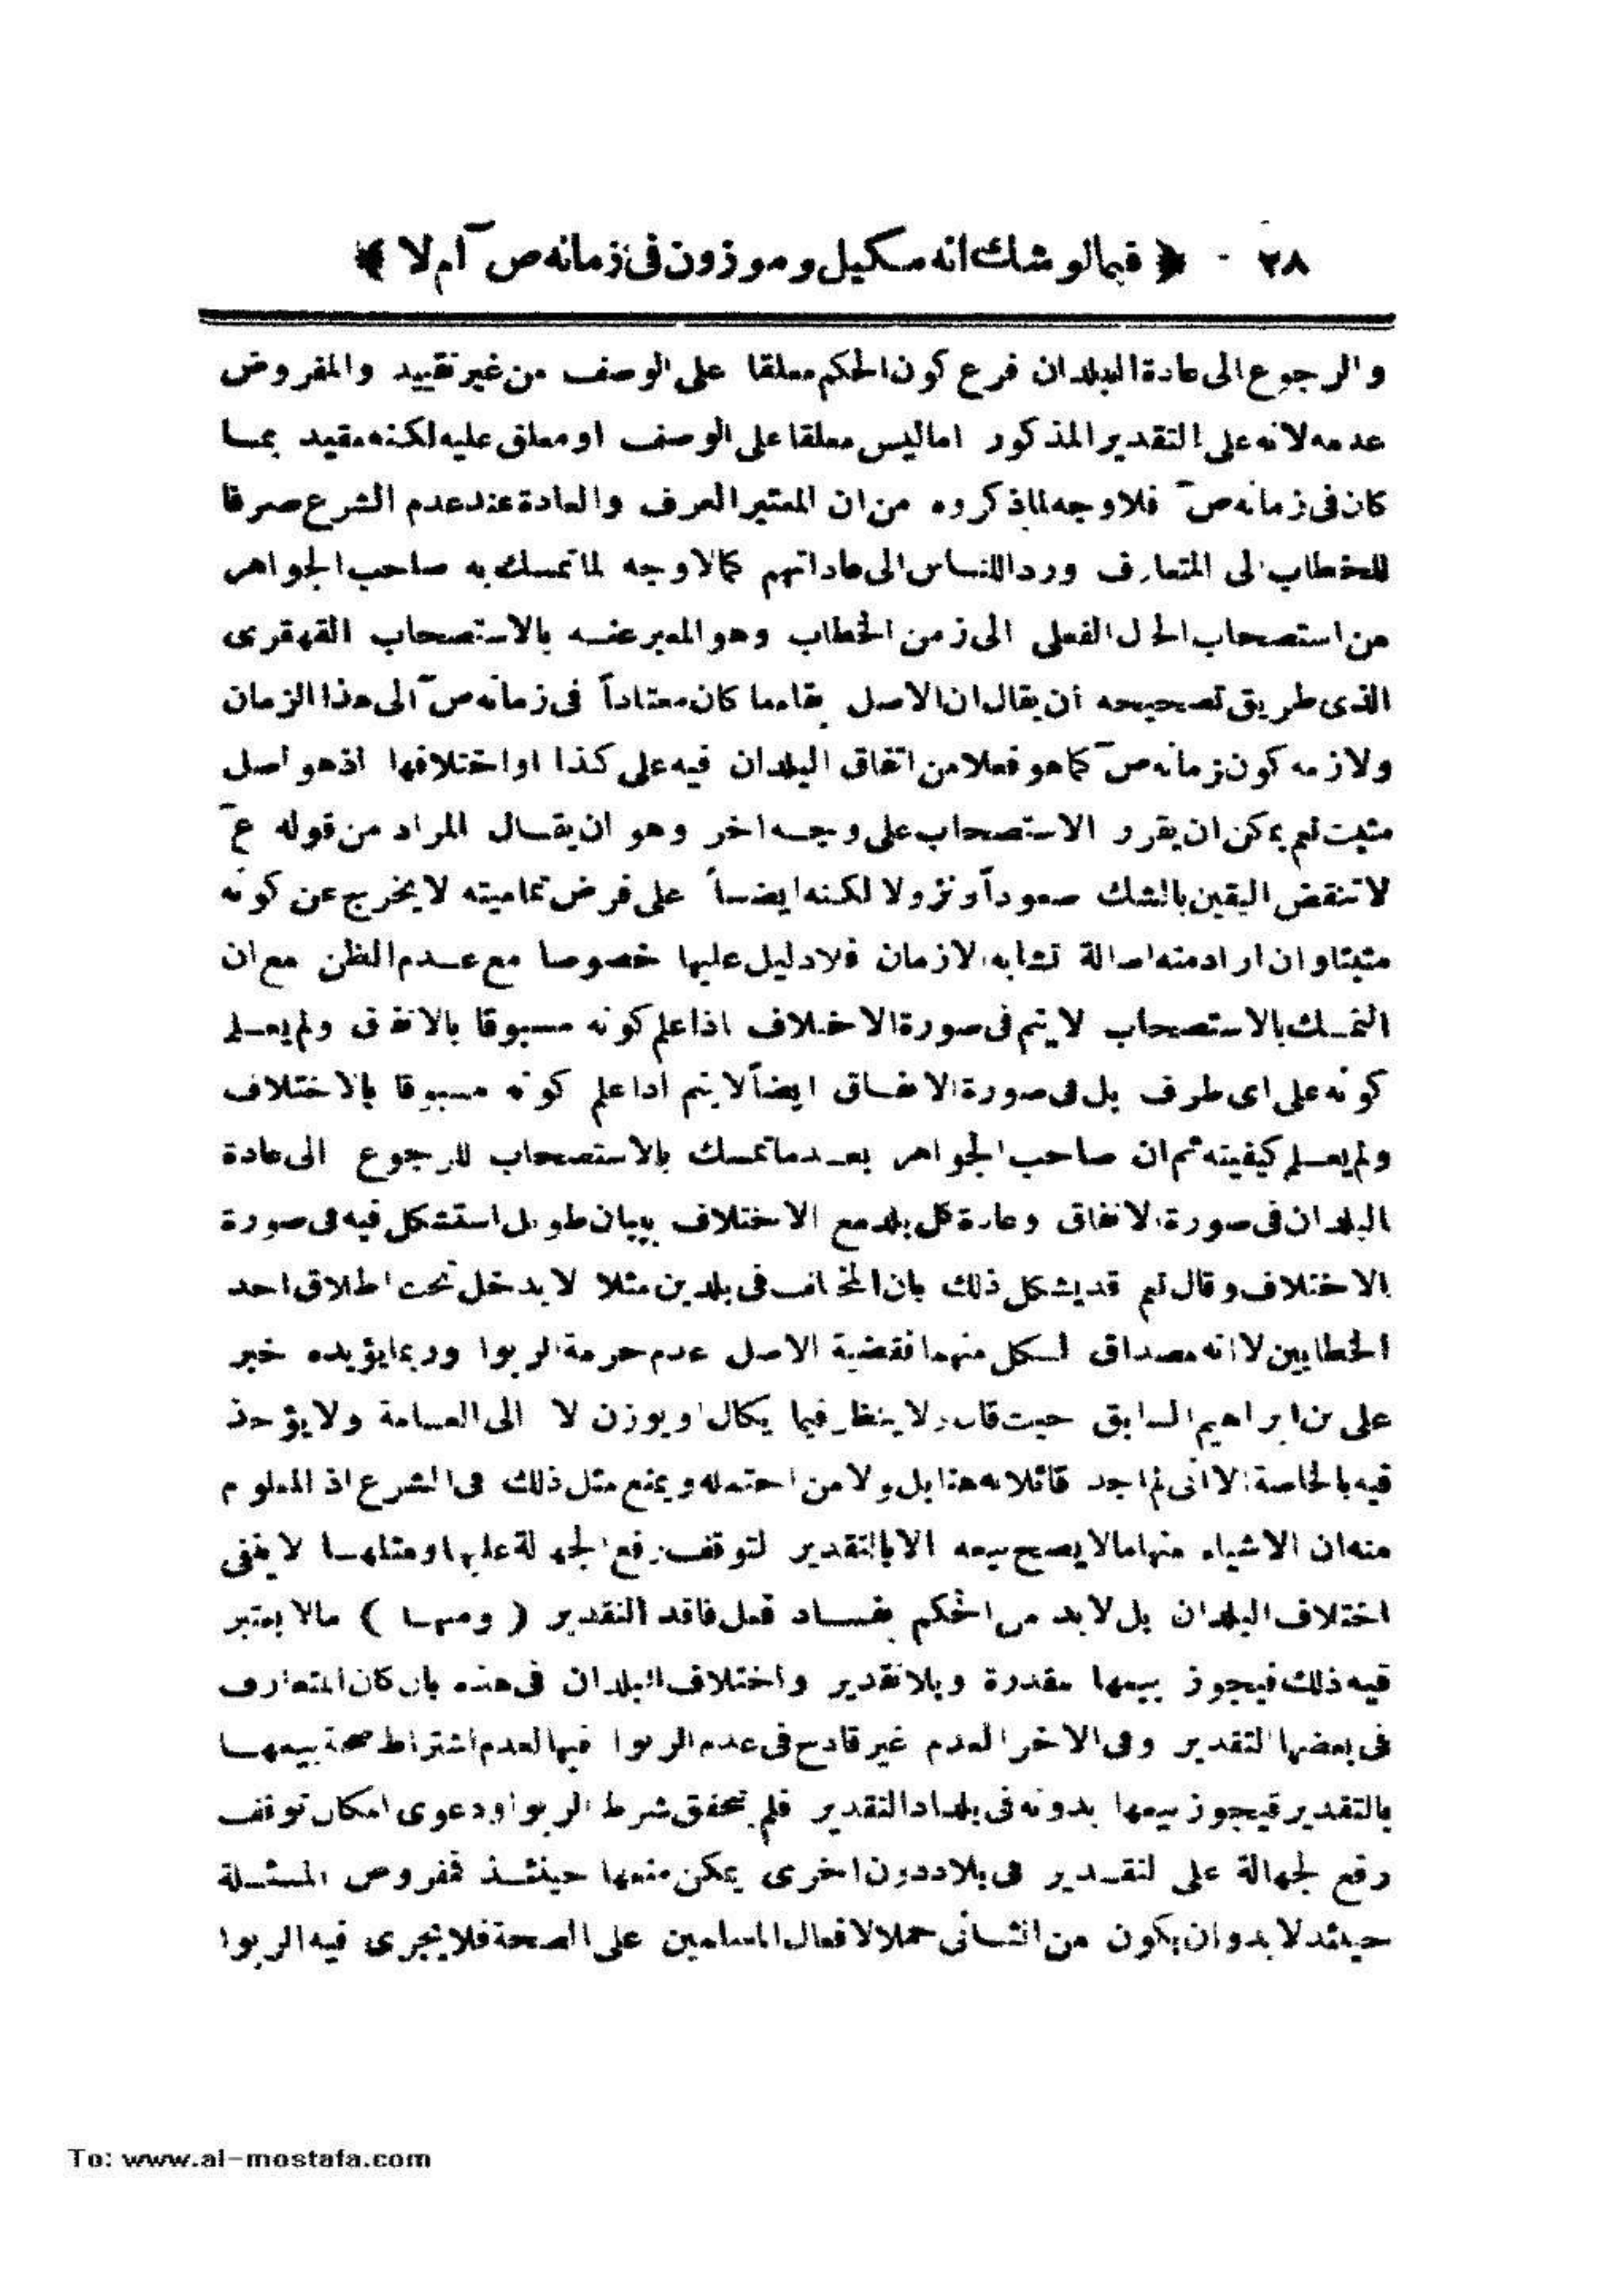 ٢٨ ﴿ فيما لو شك انه مكيل و موزون فى زمانه ص آم لا ﴾
والرجوع الى عادة البلدان فرع كون الحكم معلقا على الوصف من غير تقييد والمفروض
عدمه لانه على التقدير المذكور اما ليس معلقا على الوصف او معلق عليه لكنه مقيد بما
كان فى زمانه ص فلا وجه لما ذكروه من ان المعتبر العرف والعادة عند عدم الشرع صرفا
للخطاب الى المتعارف وردا للناس الى عاداتهم كما لا وجه لما تمسك به صاحب الجواهر
من استصحاب الحال الفعلى الى زمن الخطاب وهو المعبر عنه بالاستصحاب القهقرى
الذى طريق تصحيحه أن يقال ان الاصل بقاء ما كان معتاداً فى زمانه ص الى هذا الزمان
ولازمه كون زمانه ص كما هو فعلا من اتفاق البلدان فيه على كذا او اختلافها اذ هو اصل
مثبت نعم يمكن ان يقرر الاستصحاب على وجه اخر وهو ان يقال المراد من قوله ع
لا تنقض اليقين بالشك صعوداً ونزولا لكنه ايضاً على فرض تماميته لا يخرج عن كونه
مثبتا وان اراد منه اصالة تشابه الازمان فلا دليل عليها خصوصا مع عدم الظن مع ان
التمسك بالاستصحاب لا يتم فى صورة الاختلاف اذا علم كونه مسبوقا بالاتفاق ولم يعلم
كونه على اى طرف بل فى صورة الاتفاق ايضاً لا يتم اذا علم كونه مسبوقا بالاختلاف
ولم يعلم كيفيته ثم ان صاحب الجواهر بعد ما تمسك بالاستصحاب للرجوع الى عادة
البلدان فى صورة الاتفاق وعادة كل بلد مع الاختلاف ببيان طويل استشكل فيه فى صورة
الاختلاف وقال نعم قد يشكل ذلك بان المختلف فى بلدين مثلا لا يدخل تحت اطلاق احد
الخطابين لا انه مصداق لكل منهما فقضية الاصل عدم حرمة الربوا وربما يؤيده خبر
على بن ابراهيم السابق حيث قال ولا ينظر فيما يكال او يوزن لا الى العامة ولا يؤخذ
فيه بالخاصة الا انى لم اجد قائلا به هنا بل ولا من احتمله ويمنع مثل ذلك فى الشرع اذ المعلوم
منه ان الاشياء منها ما لا يصح بيعه الا بالتقدير لتوقف رفع الجهالة عليها ومثلها لا يغنى
اختلاف البلدان بل لابد من الحكم بفساد فعل فاقد التقدير ( ومنها ) ما لا يعتبر
فيه ذلك فيجوز بيعها مقدرة وبلا تقدير واختلاف البلدان فى هذه بان كان المتعارف
فى بعضها التقدير وفى الاخر العدم غير قادح فى عدم الربوا فيها لعدم اشتراط صحة بيعها
بالتقدير فيجوز بيعها بدونه فى بلاد التقدير فلم تحقق شرط الربوا ودعوى امكان توقف
رفع لجهالة على لتقدير فى بلاد دون اخرى يمكن منعها حينئذ فمفروض المسئلة
حينئذ لابد وان يكون من الثانى حملا لافعال المسلمين على الصحة فلا يجرى فيه الربوا
To: www.al-mostafa.com